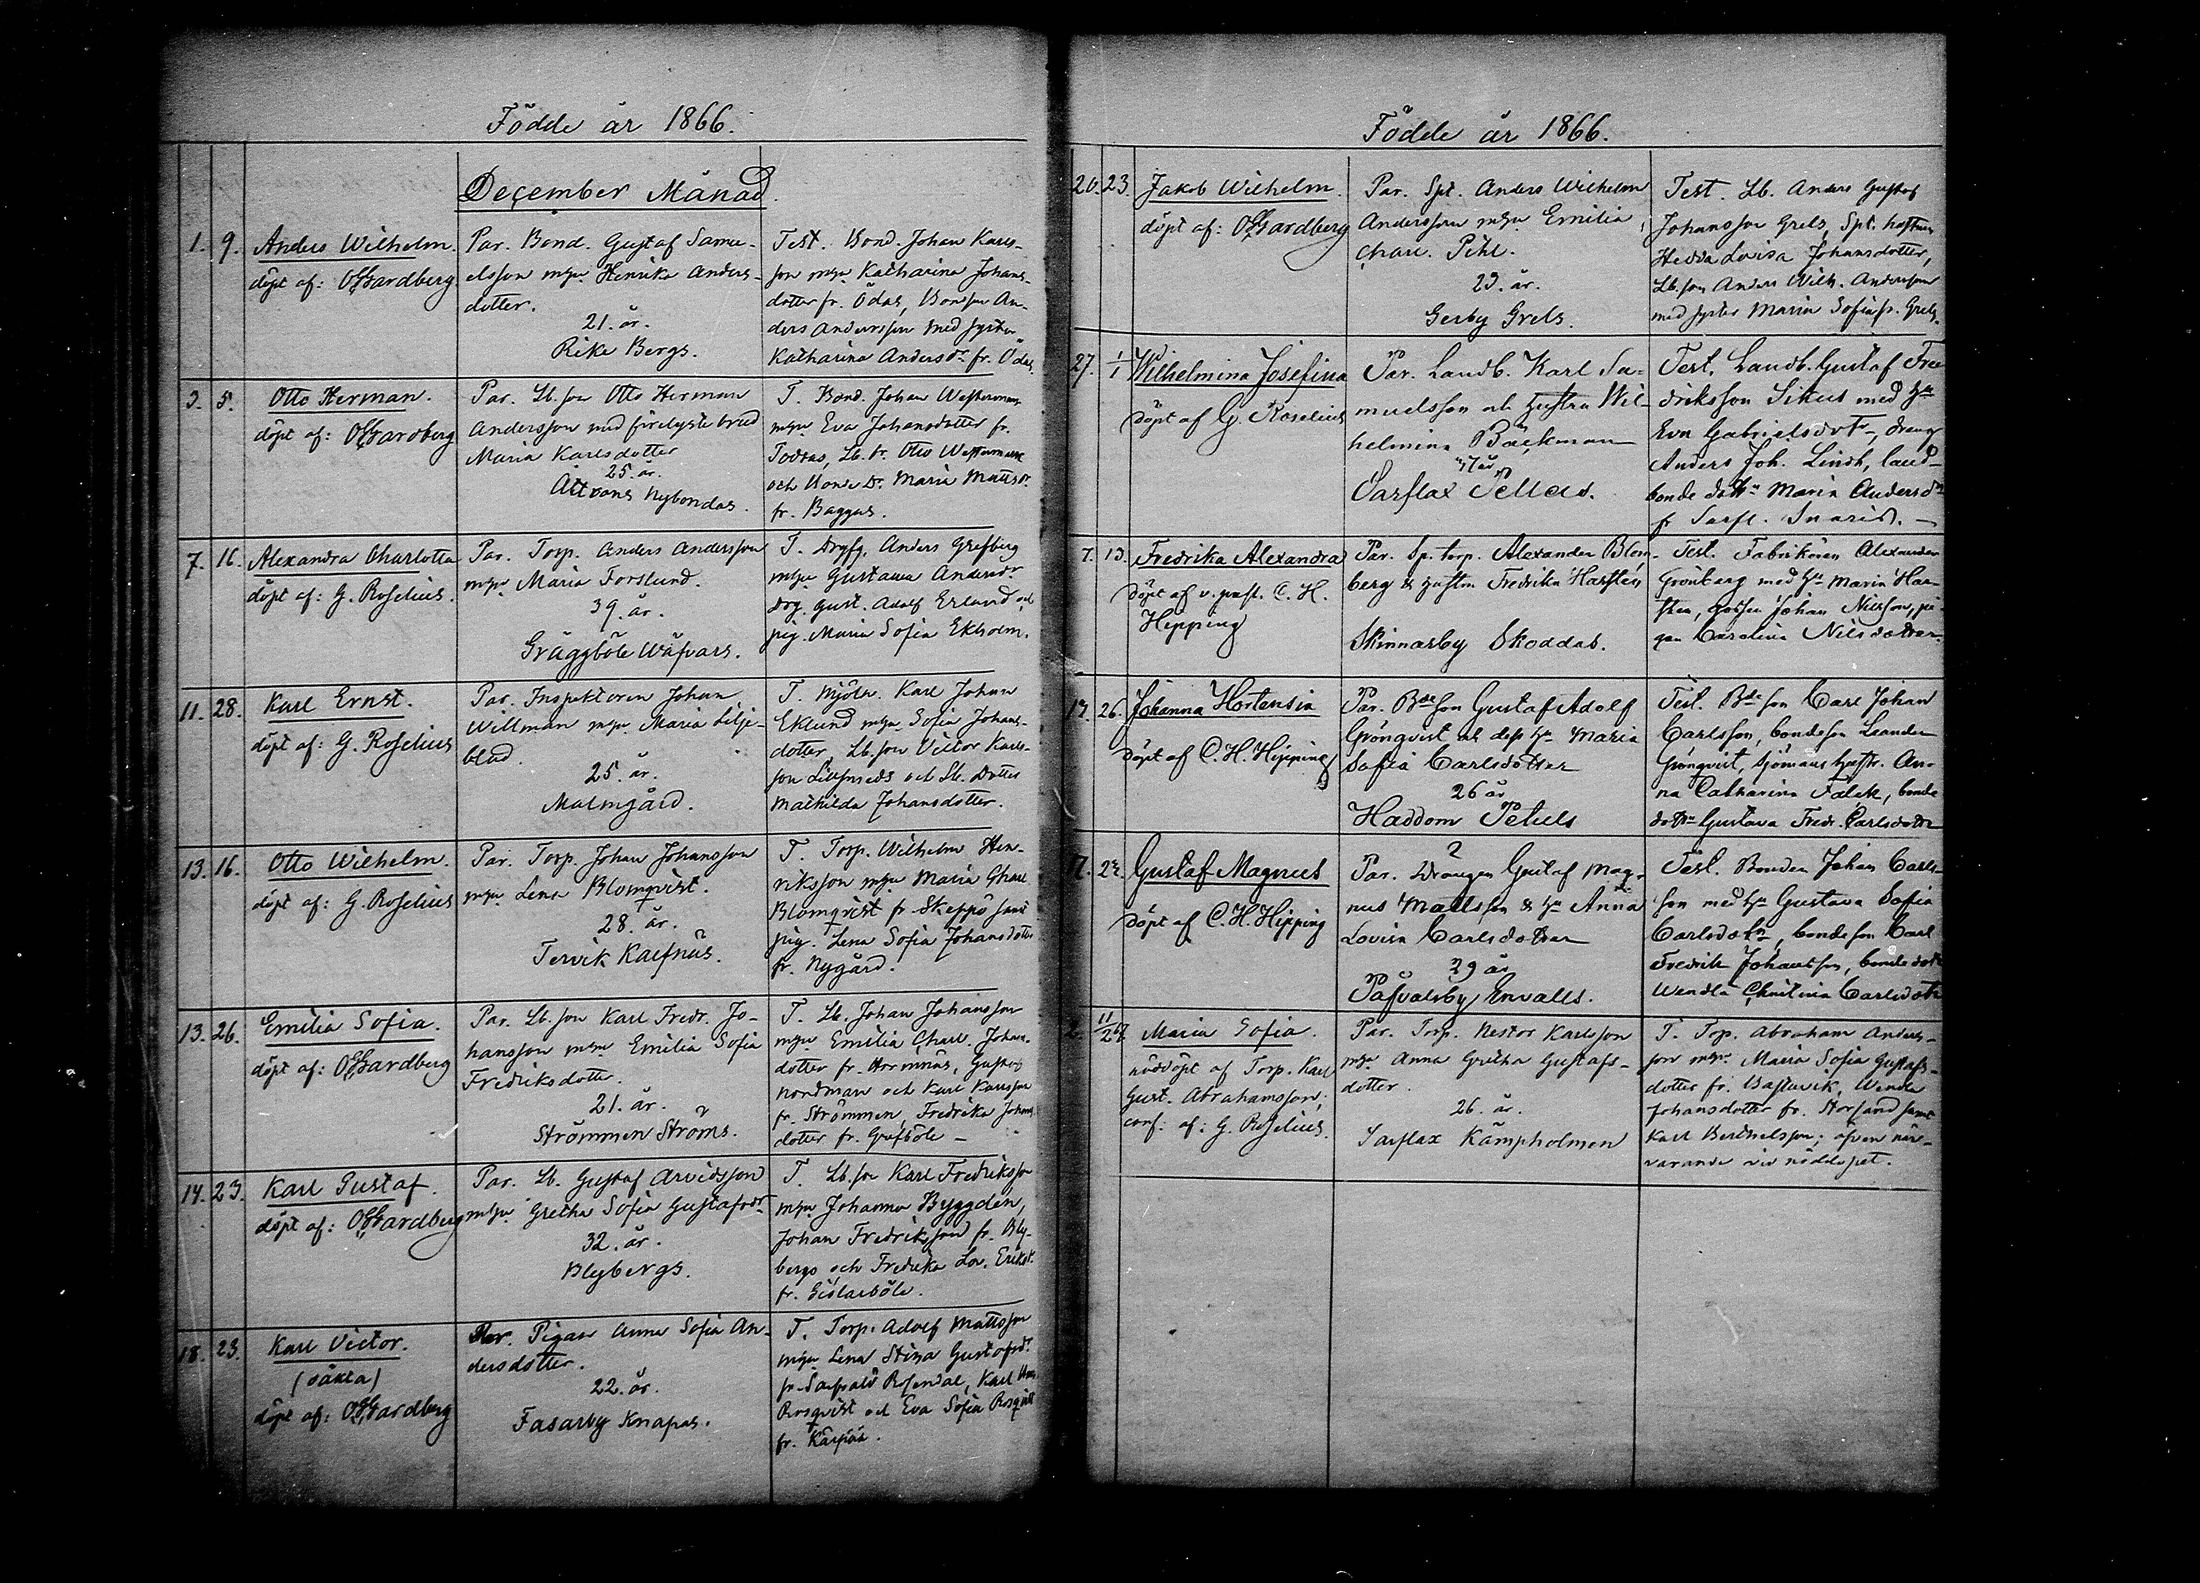 Födde år 1866.
December Månad.
1. 9. Anders Wilhelm.
döpt af: OGGardberg
Par. Bond. Gustaf Samu-
elsson m. Henrika Anders-
dotter.
21. år.
Rike Bergs.
Test. Bond. Johan Karls-
son m. Katharina Johans-
dotter fr. Ödas, Bondson An-
ders Andersson med syster
Katharina Andersdr. fr. Ödas.
3. 5. Otto Herman.
döpt af: OGGardberg
Par. Lb. son Otto Herman
Andersson med förelyste brud
Maria Karlsdotter
25. år.
Nybondas.
T. Bond. Johan Westerman
Eva Johansdotter fr.
Lb. Otto Westerman
och Maria Mattsdr.
fr. Baggas.
7. 16. Alexandra Charlotta
döpt af: G. Roselius.
Par. Torp. Anders Andersson
Maria Forslund.
39. år.
Gräggböle Wäfvars.
T. Anders Grefberg
Gustava Andersdr.
drg. Gust. Adolf Erlund och
pig. Maria Sofia Ekholm.
11. 28. Karl Ernst.
döpt af: G. Roselius
Par. Inspektoren Johan
Willman Maria Lilje-
blad.
25. år.
Malmgård.
T. Mjöln. Karl Johan
Eklund Sofia Johans-
dotter, Lb. son Victor Karls-
son och Lb. dotter
Mathilda Johansdotter.
13. 16. Otto Wilhelm.
döpt af: G. Roselius
Par. Torp. Johan Johansson
Lena Blomqvist.
28. år.
Tervik Kalfnäs.
T. Torp. Wilhelm Hen-
riksson Maria Charl.
Blomqvist fr. Skeppö samt
pig. Lena Sofia Johansdotter
fr. Nygård.
13. 26. Emilia Sofia.
döpt af: OGGardberg
Par. Lb. son Karl Fredr. Jo-
hansson Emilia Sofia
Fredriksdotter.
21. år.
Strömmen Ströms.
T. Lb. Johan Johansson
Emilia Charl. Johans-
dotter fr. Hormnäs, Gustaf
Nordman och Karl Karlsson
fr. Strömmen, Fredrika Johans-
dotter fr. Gräfböle –
14. 23. Karl Gustaf.
döpt af: OGGardberg
Par. Lb. Gustaf Arvidsson
Gretha Sofia Gustafsdr.
32. år.
Blybergs.
T. Lb. son Karl Fredriksson
Johanna Byggden,
Johan Fredriksson fr. Bly-
bergs och Fredrika Lov. Eriksdr.
fr. Gislarböle.
18. 23. Karl Victor.
(oäkta)
döpt af: OGGardberg
Par. Pigan Anna Sofia An-
dersdotter.
22. år.
Fasarby Knapas.
T. Torp. Adolf Mattsson
Lena Stina Gustafsdr.
fr. Rosendal, Karl
Rosqvist och Eva Sofia Rosqvist
fr.
Födde år 1866.
20. 23. Jakob Wilhelm.
döpt af: OGGardberg
Par. Spt. Anders Wilhelm
Andersson Emilia
Charl. Pihl.
23. år.
Gerby Grels.
Test. Lb. Anders Gustaf
Johansson Grels, Spt. hustrun
Hedda Lovisa Johansdotter,
Lb. son Anders Wilh. Andersson
med syster Maria Sofia fr. Grels.
27. 1/1 Wilhelmina Josefina
Döpt af G. Roselius
Par. Landb. Karl Sa-
muelsson och hustru Wil-
helmina Bäckman
Sarflax Pellas.
Test. Landb. Gustaf Fre-
driksson Sikus med hu
Eva Gabrielsdotr, dreng
Anders Joh. Lindh, land-
bonde dottr Maria Andersdr
fr Sarfl. –
7. 13. Fredrika Alexandra
Döpt af v. past. C. H.
Hipping
Par. Sp. torp. Alexander Blom-
berg & hustru Fredrika Harsten
Skinnarby Skoddas.
Test. Fabrikören Alexander
Grönberg med hu Maria Har-
sten, gossen Johan Nilsson, pi-
gan Carolina Nilsdotter.
17. 26. Johanna Hortensia
Döpt af C. H. Hipping
Par. Bdeson Gustaf Adolf
Grönqvist och dess hu Maria
Sofia Carlsdotter
26 år
Haddom Petus
Test. Bdeson Carl Johan
Carlsson, bondeson Leander
Grönqvist, sjömans hustr. An-
na Catharina Falck, bonde
dottr Gustava Fredr. Carlsdotter
17. 22. Gustaf Magnus
Döpt af C. H. Hipping
Par. Drängen Gustaf Mag-
nus Mattsson & hu Anna
Lovisa Carlsdotter
29 år
Påfvalsby Envalls.
Test. Bonden Johan Carls-
son med hu Gustava Sofia
Carlsdotr, bondeson Carl
Fredrik Johansson, bonde dotr
Wendla Christina Carlsdotr
2. 11/24 Maria Sofia.
nöddöpt af Torp. Karl
Gust. Abrahamsson;
conf. af: G. Roselius.
Par. Torp. Nestor Karlsson
Anna Gretha Gustafs-
dotter.
26. år.
Sarflax Kämpholmen
T. Torp. Abraham Anders-
son Maria Sofia Gustafs-
dotter fr. Bastuvik, Wendla
Johansdotter fr. Storsand samt
Karl Berthelsson; äfven när-
varande vid nöddopet.